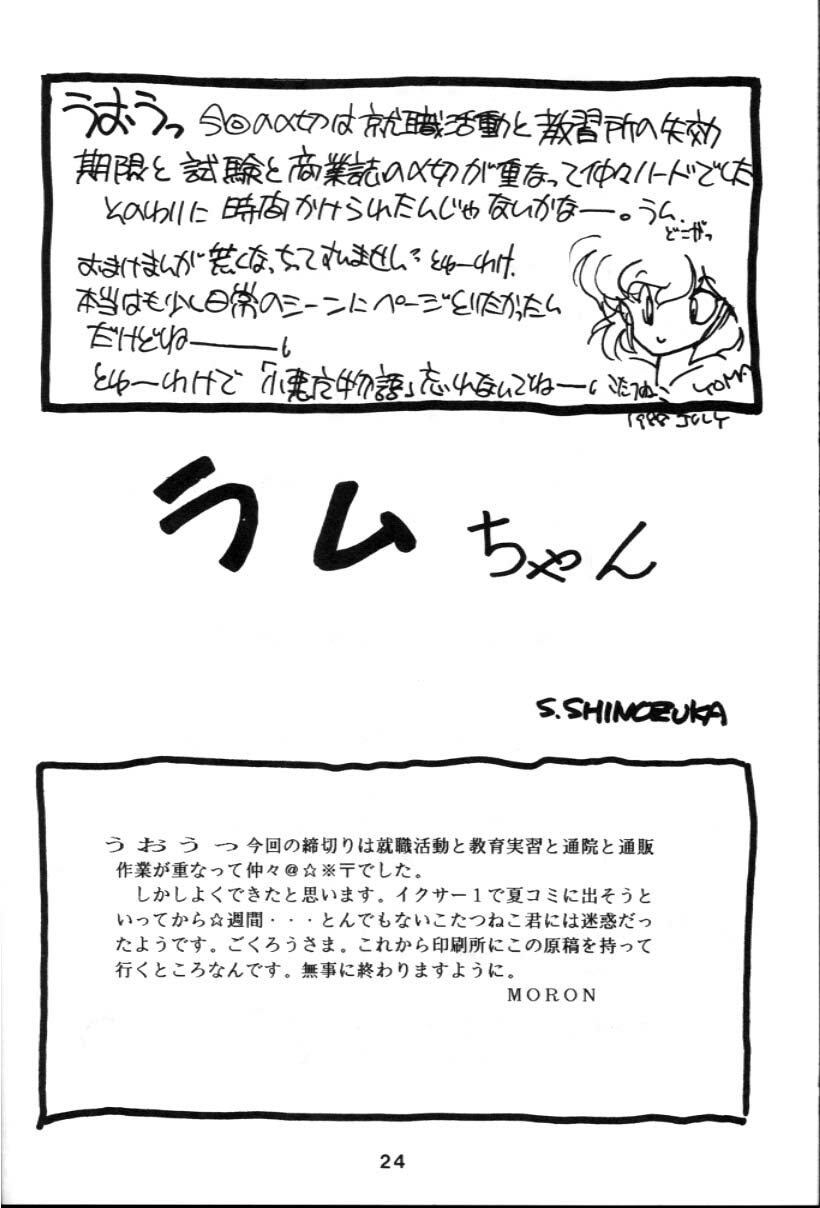 うおうっ 今回の〆切は就職活動と教習所の失効
期限と試験と商業誌の〆切が重なって仲々ハードでした
そのわりに時間かけられたんじゃないかなー。うん.
どこがっ
おまけまんが荒くなっちってすいません。とゆーわけ.
本当はも少し日常のシーンにページとりたかったん
だけどねー。
とゆーわけで「小悪魔物語」忘れないでねー。こたつねこ
1988 JULY
ラムちゃん
S.SHINOZUKA
うおうっ今回の締切りは就職活動と教育実習と通院と通販
作業が重なって仲々@☆※〒でした。
しかしよくできたと思います。イクサー1で夏コミに出そうと
いってから☆週間・・・とんでもないこたつねこ君には迷惑だっ
たようです。ごくろうさま。これから印刷所にこの原稿を持って
行くところなんです。無事に終わりますように。
MORON
24